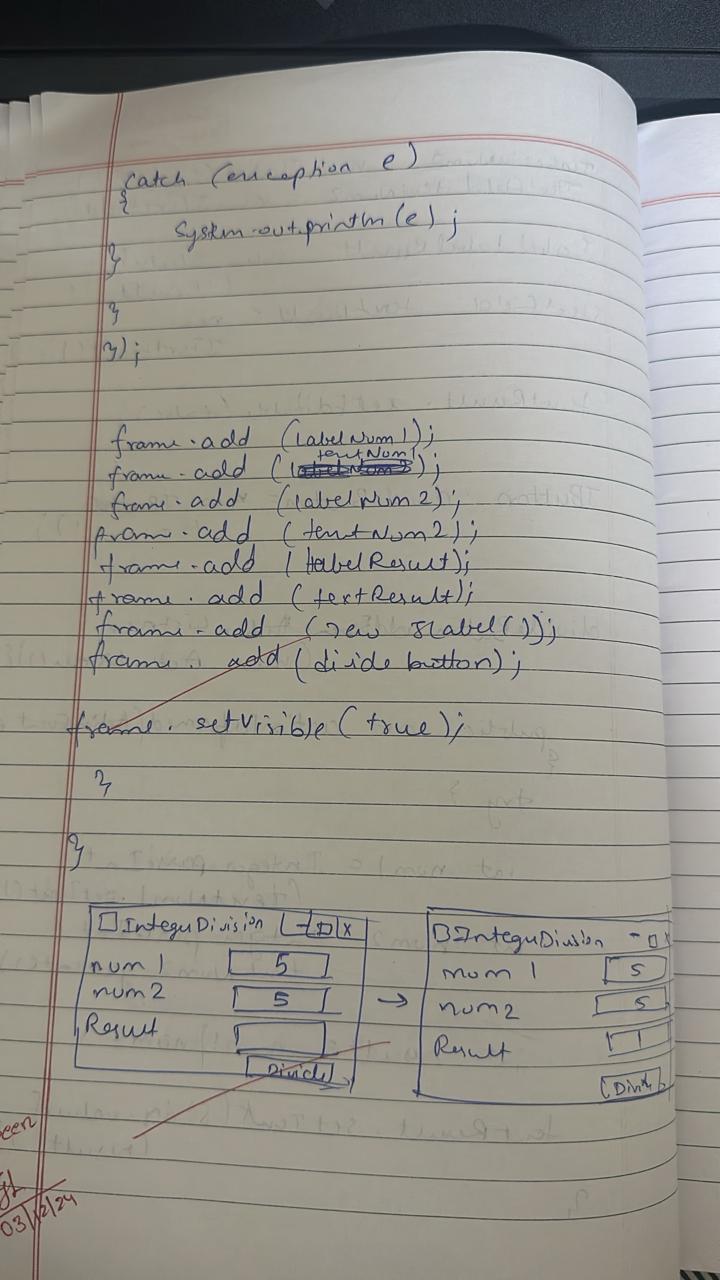 catch (exception e)
{
System.out.println(e);
}
}
});
frame.add (labelNum1);
textNum1
frame.add ( );
frame.add (labelNum2);
frame.add (textNum2);
frame.add (labelResult);
frame.add (textResult);
frame.add (new Jlabel());
frame.add (divide button);
frame.setVisible (true);
}
}
Integer Division - □ X
num 1 5
num2 5
Result
Divide
→
Integer Division - □ X
num 1 5
num2 5
Result 1
Divide
een
03/12/24